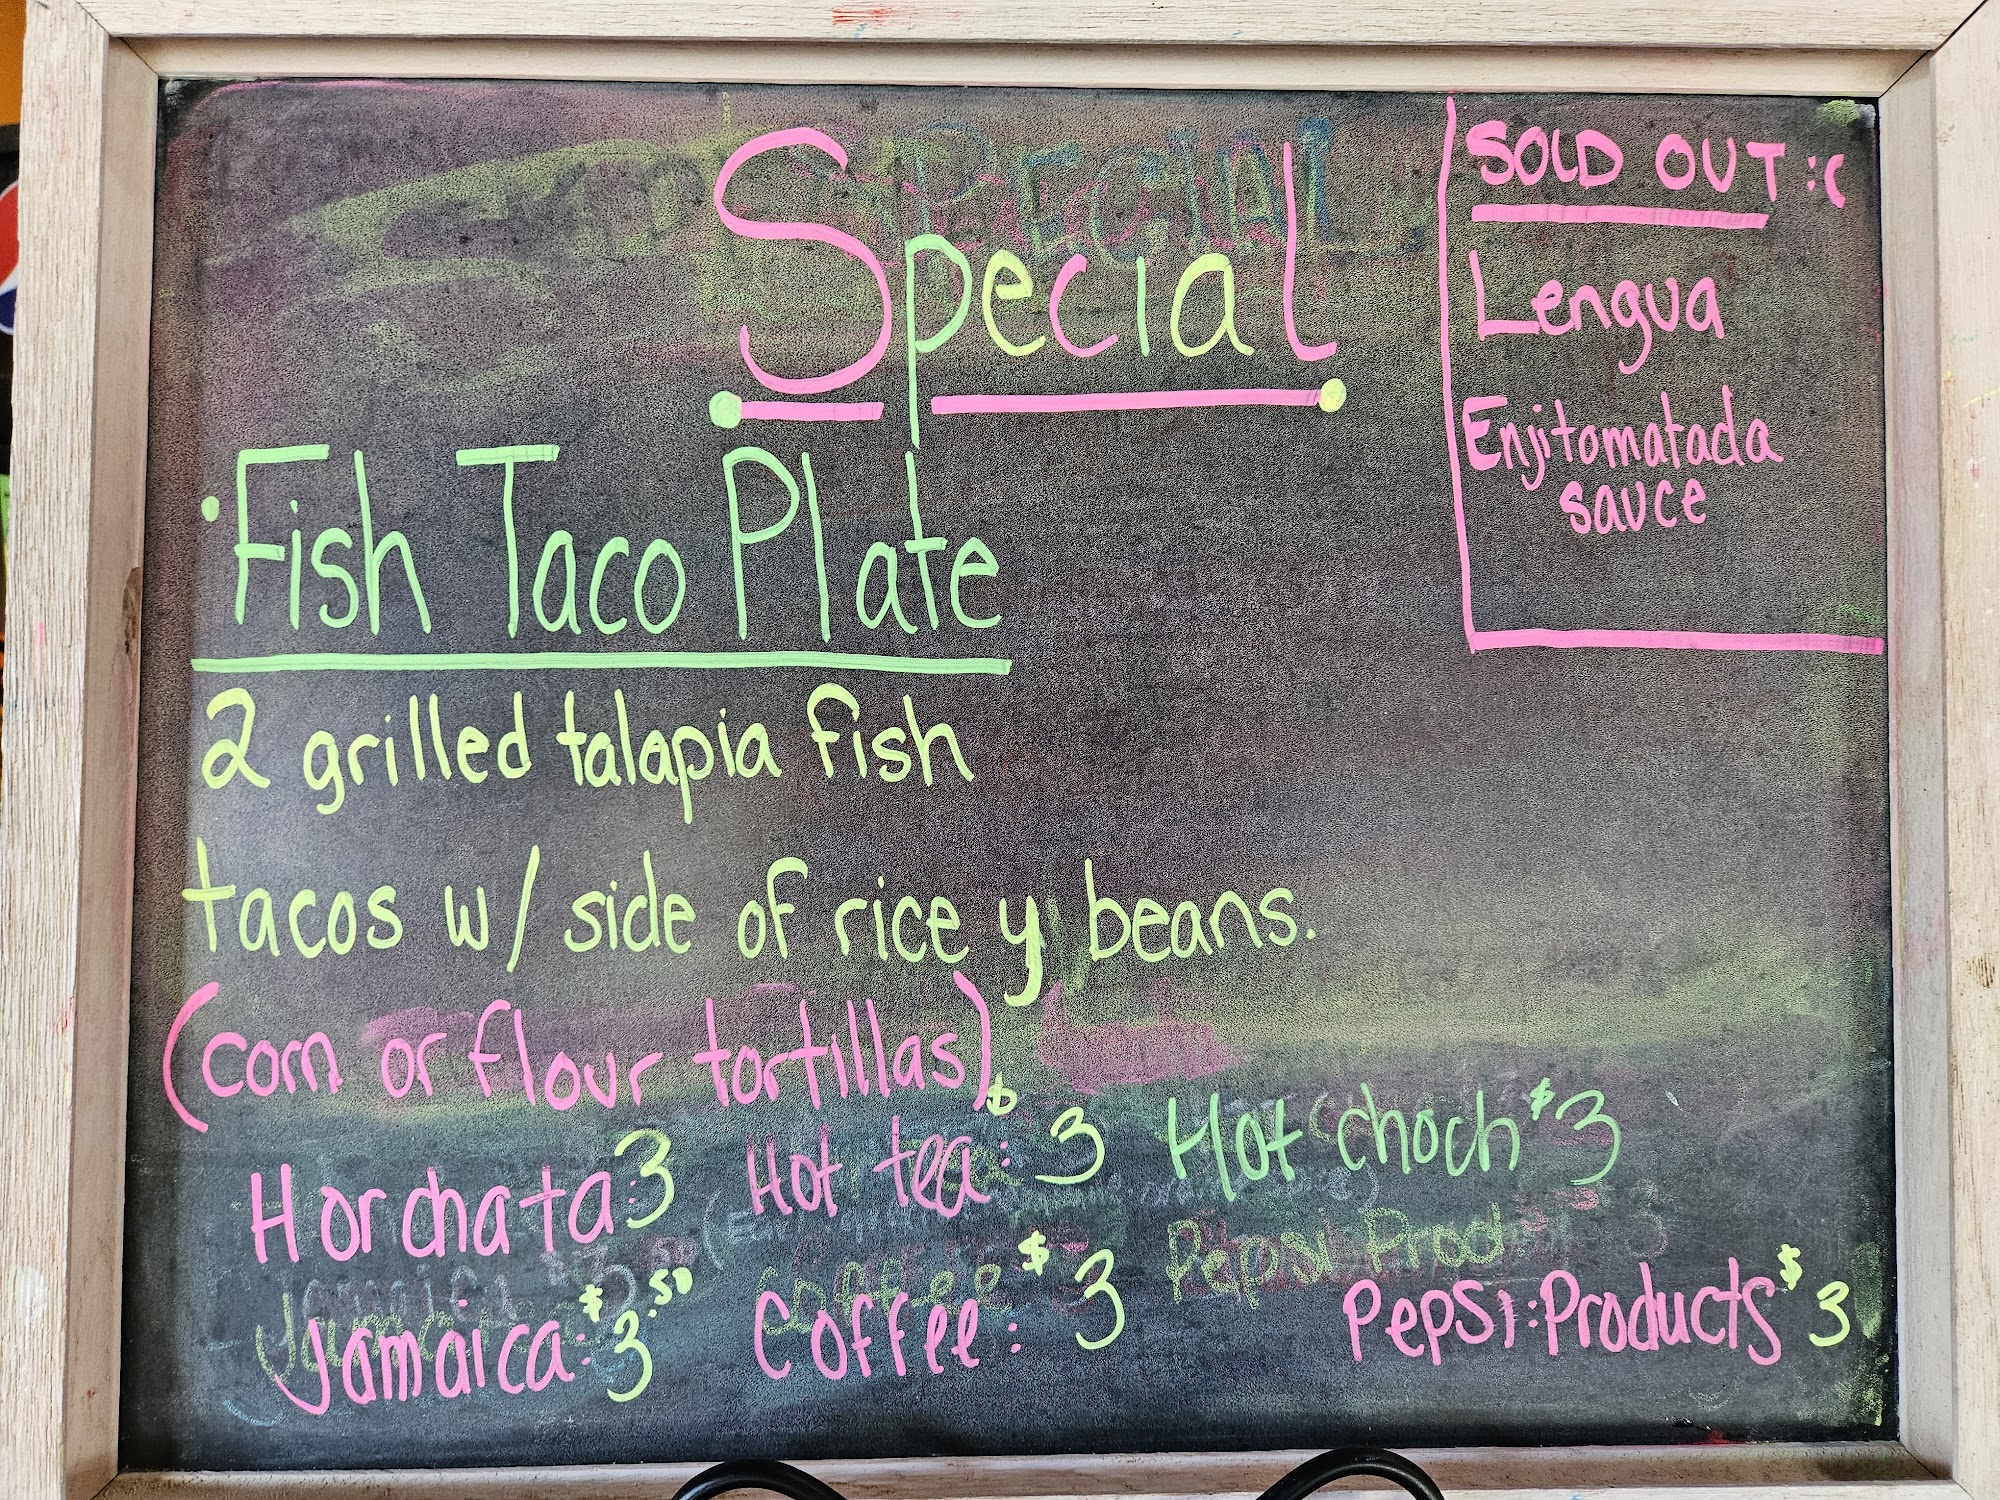 Special
SOLD OUT :(
Lengua
Enjitomatada
sauce
• Fish Taco Plate
2 grilled talapia fish
tacos w/ side of rice y beans.
(corn or flour tortillas)
Horchata: 3 Hot tea: $3 Hot choch $3
Jamaica: $3.50 Coffee: $3 Pepsi: Products $3